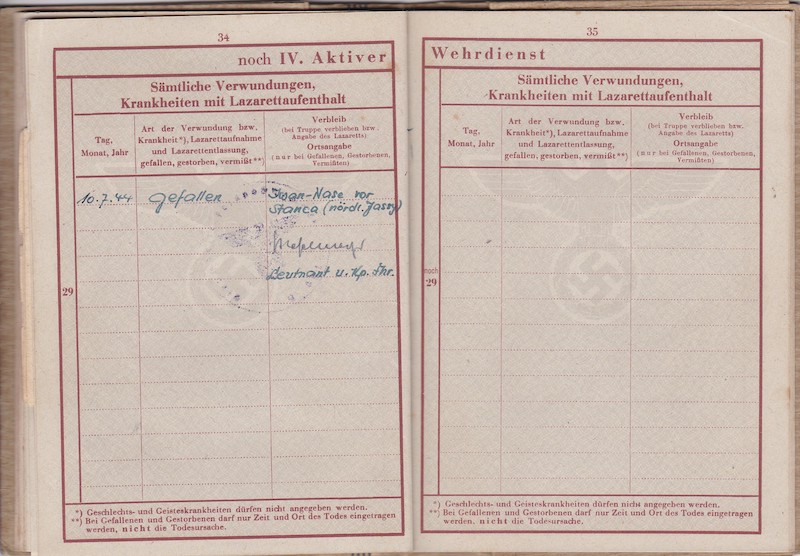 34
noch IV. Aktiver
Sämtliche Verwundungen,
Krankheiten mit Lazarettaufenthalt
Tag,
Monat, Jahr
Art der Verwundung bzw.
Krankheit*), Lazarettaufnahme
und Lazarettentlassung,
gefallen, gestorben, vermißt**)
Verbleib
(bei Truppe verblieben bzw.
Angabe des Lazaretts)
Ortsangabe
(nur bei Gefallenen, Gestorbenen,
Vermißten)
29
10.7.44 gefallen
-Nase vor
Stanca (nördl. Jassy)
Leutnant u. Kp. Fhr.
*) Geschlechts- und Geisteskrankheiten dürfen nicht angegeben werden.
**) Bei Gefallenen und Gestorbenen darf nur Zeit und Ort des Todes eingetragen
werden, nicht die Todesursache.
35
Wehrdienst
Sämtliche Verwundungen,
Krankheiten mit Lazarettaufenthalt
Tag,
Monat, Jahr
Art der Verwundung bzw.
Krankheit*), Lazarettaufnahme
und Lazarettentlassung,
gefallen, gestorben, vermißt**)
Verbleib
(bei Truppe verblieben bzw.
Angabe des Lazaretts)
Ortsangabe
(nur bei Gefallenen, Gestorbenen,
Vermißten)
noch
29
*) Geschlechts- und Geisteskrankheiten dürfen nicht angegeben werden.
**) Bei Gefallenen und Gestorbenen darf nur Zeit und Ort des Todes eingetragen
werden, nicht die Todesursache.